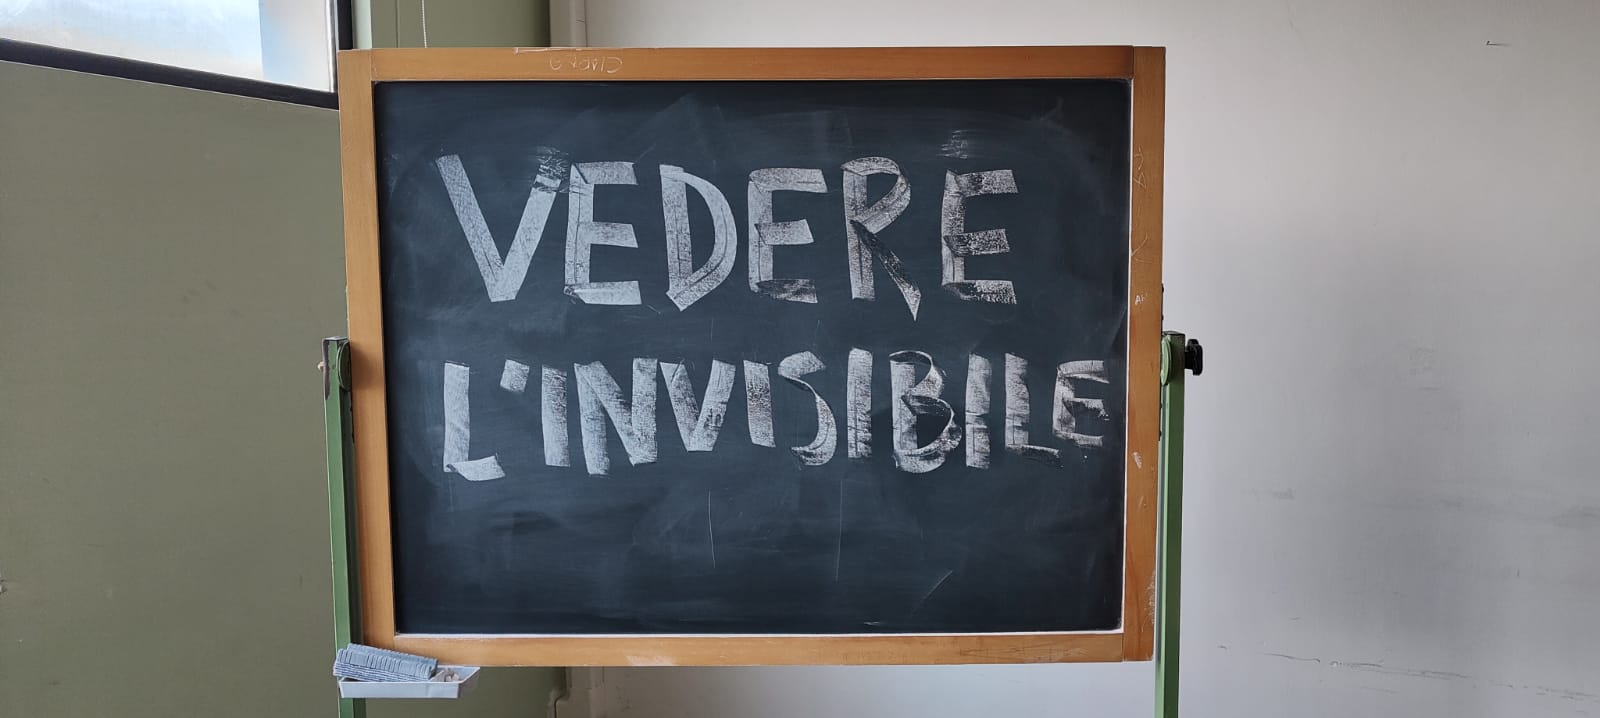 VEDERE
L'INVISIBILE